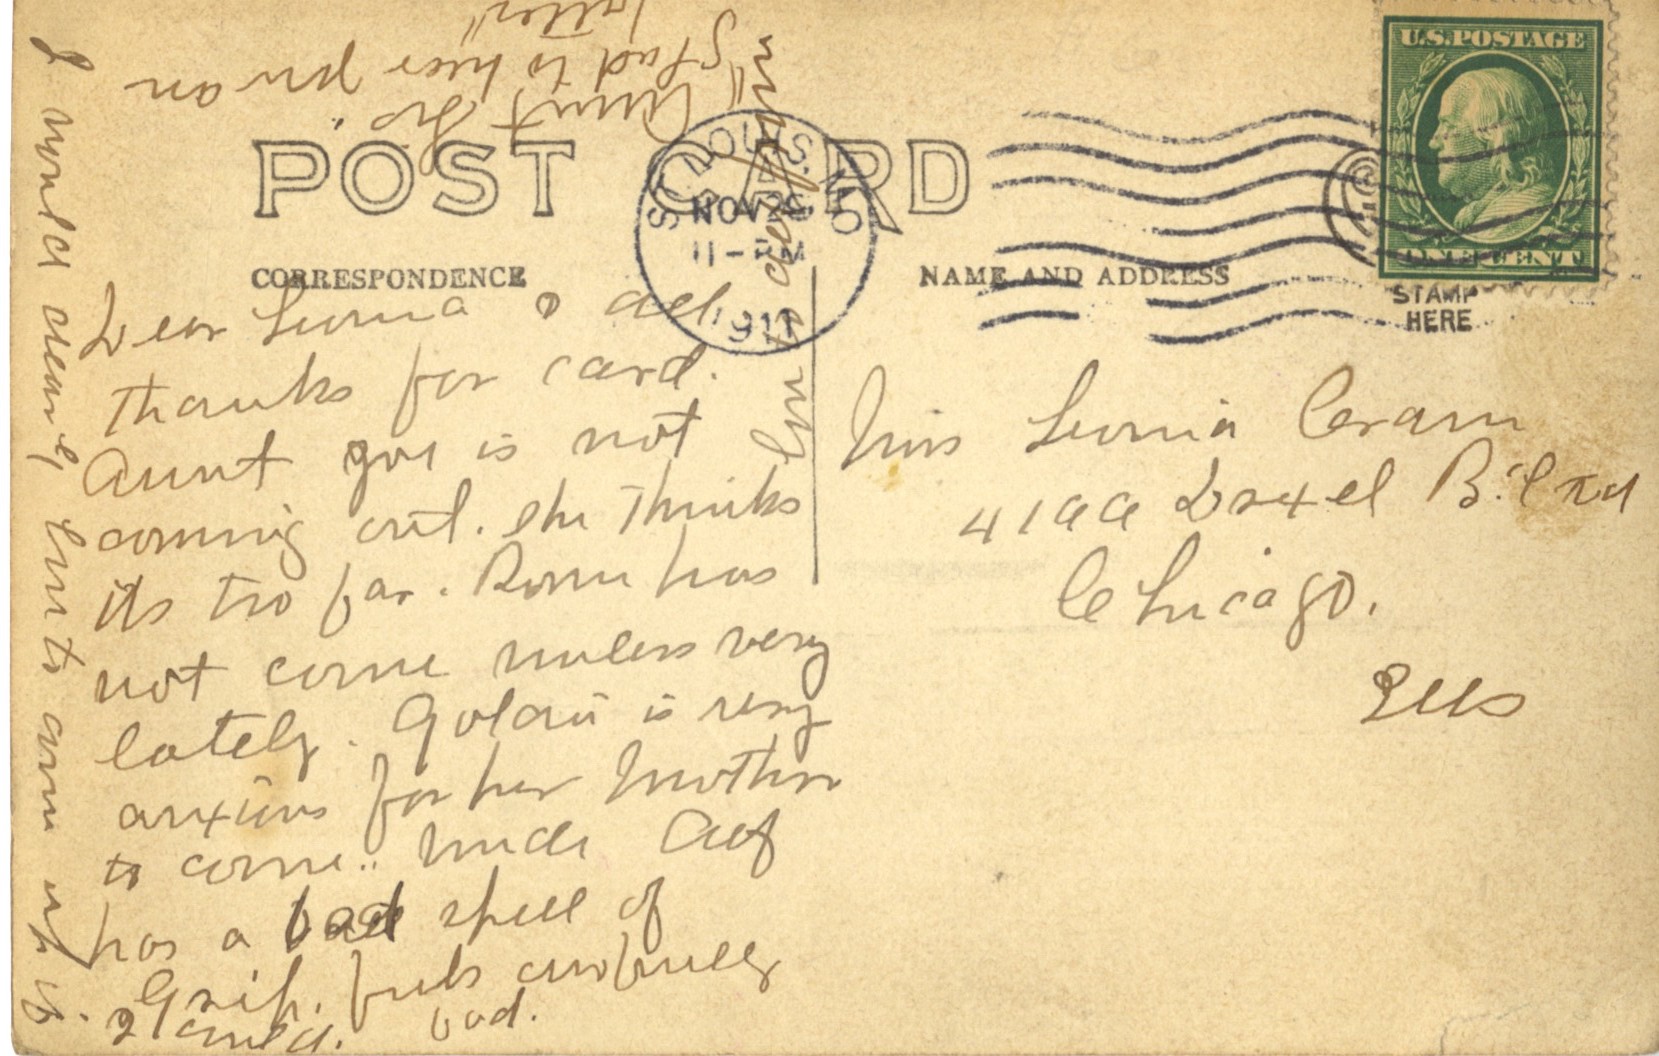 POST CARD
CORRESPONDENCE
NAME AND ADDRESS
U.S. POSTAGE
ONE CENT
STAMP
HERE
ST. LOUIS, MO
NOV 26
11-PM
1911
Dear Leonia & all
thanks for card.
Aunt is not
coming out. She thinks
its too far. has
not come unless very
lately. Goldie is very
anxious for her Mother
to come. Uncle Alf
has a bad spell of
Grip. feels awfully
bad.
I would dearly love to come up if
I could.
love to all from
Aunt Flo
Glad to hear you are
Miss Leonia Cram
4199 Drexel B'lvd
Chicago.
Ills